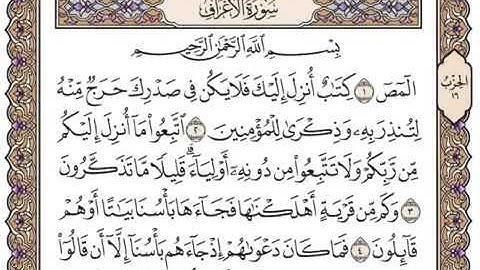 سُورَةُ الأَعْرَافِ
بِسْمِ اللَّهِ الرَّحْمَٰنِ الرَّحِيمِ
الٓمٓصٓ ١ كِتَٰبٌ أُنزِلَ إِلَيْكَ فَلَا يَكُن فِى صَدْرِكَ حَرَجٌ مِّنْهُ
لِتُنذِرَ بِهِۦ وَذِكْرَىٰ لِلْمُؤْمِنِينَ ٢ ٱتَّبِعُوا۟ مَآ أُنزِلَ إِلَيْكُم
مِّن رَّبِّكُمْ وَلَا تَتَّبِعُوا۟ مِن دُونِهِۦٓ أَوْلِيَآءَ ۗ قَلِيلًا مَّا تَذَكَّرُونَ
٣ وَكَم مِّن قَرْيَةٍ أَهْلَكْنَٰهَا فَجَآءَهَا بَأْسُنَا بَيَٰتًا أَوْ هُمْ
قَآئِلُونَ ٤ فَمَا كَانَ دَعْوَىٰهُمْ إِذْ جَآءَهُم بَأْسُنَآ إِلَّآ أَن قَالُوٓا۟
الحِزْبُ
١٦